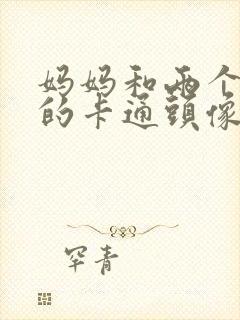 妈妈和两个
的卡通頭像
罕青